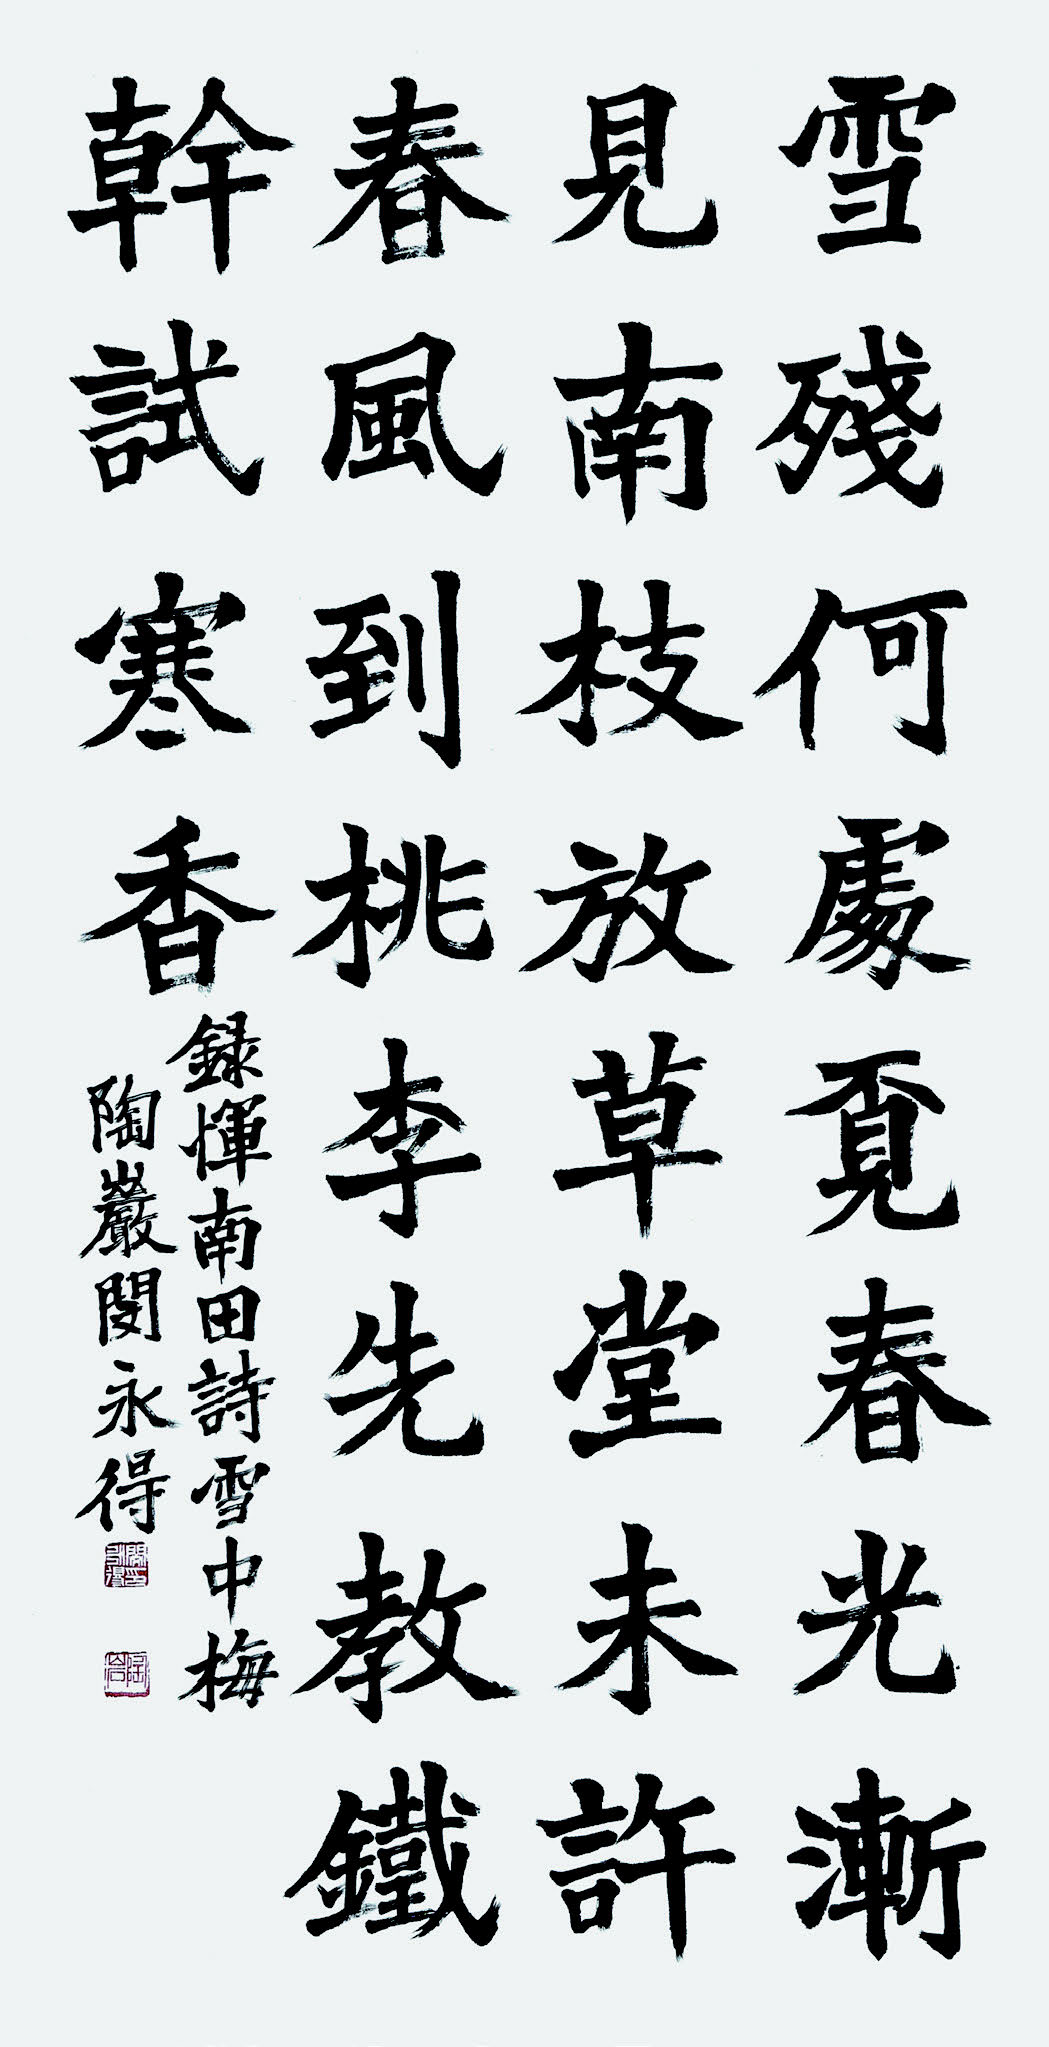 雪殘何處覓春光漸
見南枝放草堂未許
春風到桃李先教鐵
幹試寒香
録惲南田詩雪中梅
陶巖閔永得